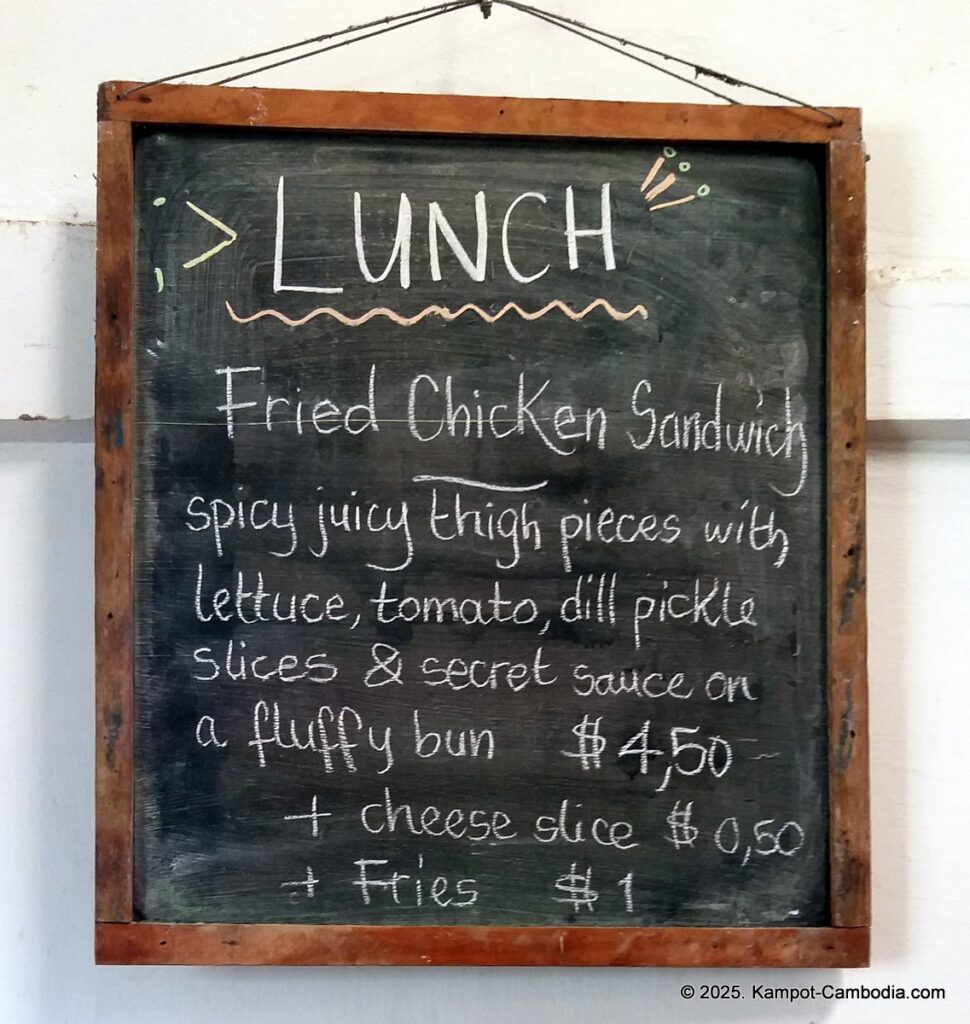 > LUNCH
Fried Chicken Sandwich
spicy juicy thigh pieces with
lettuce, tomato, dill pickle
slices & secret sauce on
a fluffy bun $4,50
+ cheese slice $0,50
+ Fries $1
© 2025. Kampot-Cambodia.com